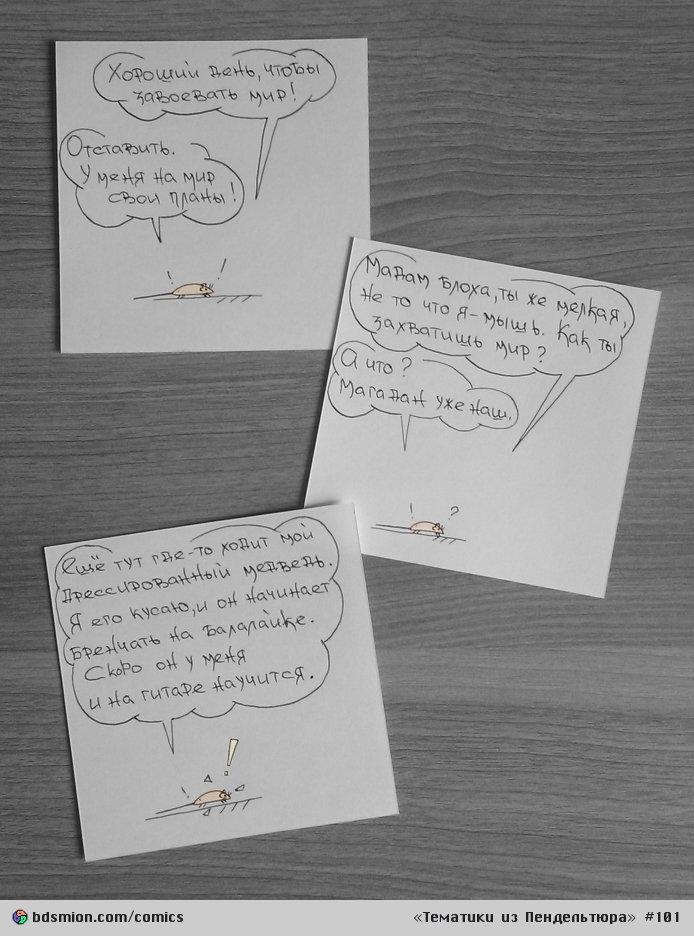 Хороший день, чтобы
завоевать мир!
Отставить.
У меня на мир
свои планы!
Мадам Блоха, ты же мелкая,
не то что я - мышь. Как ты
захватишь мир?
А что?
Магадан уже наш.
Ещё тут где-то ходит мой
дрессированный медведь.
Я его кусаю, и он начинает
бренчать на балалайке.
Скоро он у меня
и на гитаре научится.
bdsmion.com/comics
«Тематики из Пендельтюра» #101